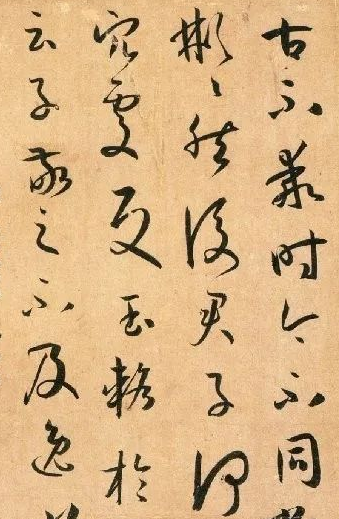 古不乖时今不同
彬彬然后君子何
宫处反玉辂於
云子敬之不及逸